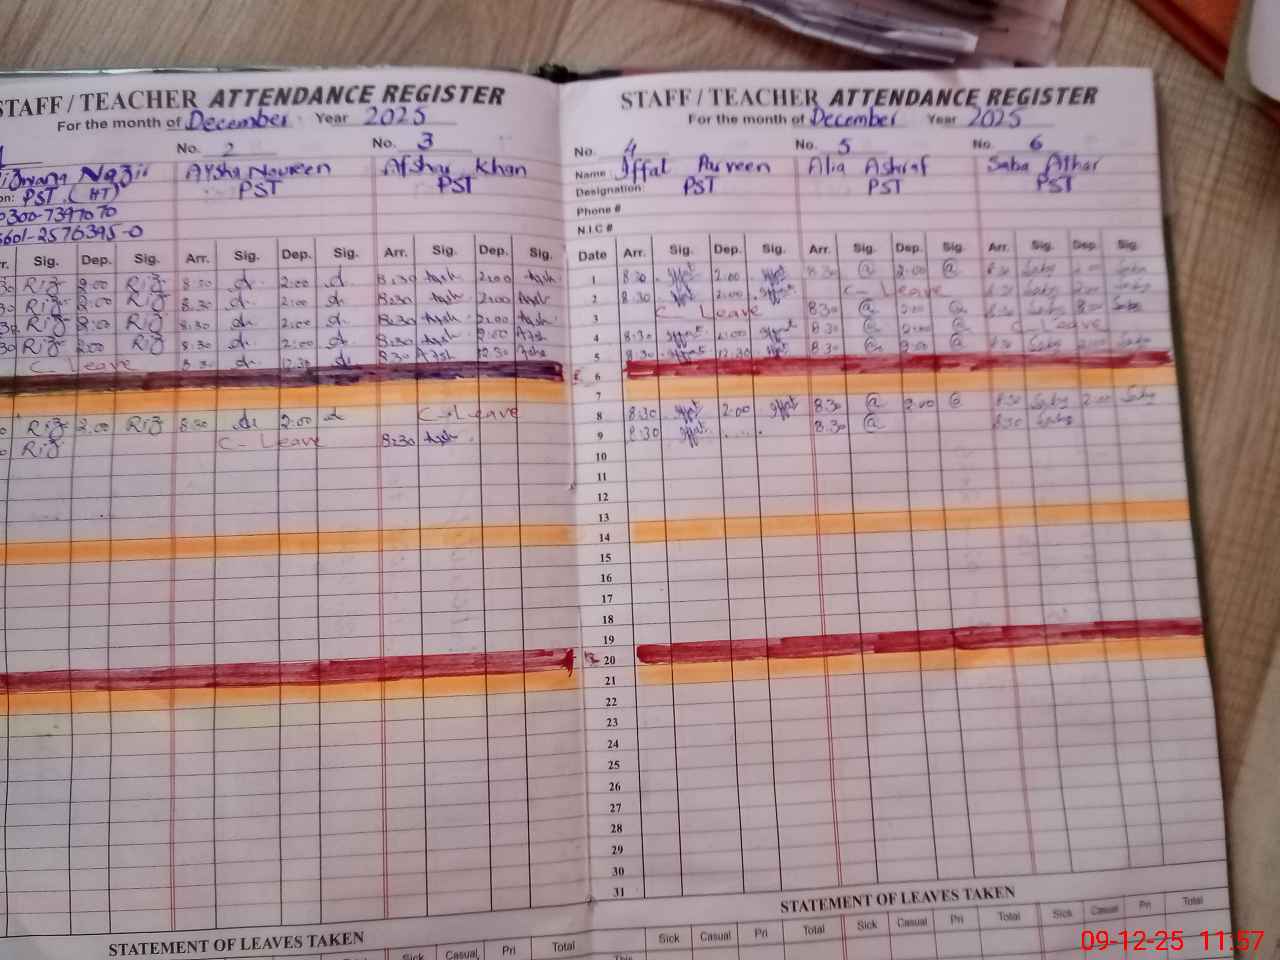 STAFF / TEACHER ATTENDANCE REGISTER
For the month of December Year 2025
No. 2 No. 3
Aysha Noureen Afshan Khan
PST (HT) PST PST
0300-7397070
Arr. Sig. Dep. Sig. Arr. Sig. Dep. Sig.
Riz 2:00 Riz 8:30 2:00 8:30 2:00
Riz 2:00 Riz 8:30 2:00 8:30 2:00
Riz 2:00 Riz 8:30 2:00 8:30 2:00
Riz 2:00 Riz 8:30 2:00 8:30 2:00
C Leave 8:30 12:30 8:30 12:30
Riz 2:00 Riz 8:30 2:00 C-Leave
Riz C-Leave 8:30
STATEMENT OF LEAVES TAKEN
Sick Casual Pri Total
STAFF / TEACHER ATTENDANCE REGISTER
For the month of December Year 2025
No. 4 No. 5 No. 6
Name Iffat Parveen Alia Ashraf Saba Athar
Designation: PST PST PST
Phone #
N.I.C #
Date Arr. Sig. Dep. Sig. Arr. Sig. Dep. Sig. Arr. Sig. Dep. Sig.
1 8:30 Iffat 2:00 Iffat 8:30 @ 2:00 @ 8:30 Saba 2:00 Saba
2 8:30 Iffat 2:00 Iffat C-Leave 8:30 Saba 2:00 Saba
3 C Leave 8:30 @ 2:00 @ 8:30 Saba Saba
4 8:30 Iffat 2:00 Iffat 8:30 @ 2:00 @ C-Leave
5 8:30 Iffat 12:30 Iffat 8:30 @ @ 8:30 Saba Saba
6
7
8 8:30 Iffat 2:00 Iffat 8:30 @ 2:00 @ 8:30 Saba 2:00 Saba
9 8:30 Iffat 8:30 @ 8:30 Saba
10
11
12
13
14
15
16
17
18
19
20
21
22
23
24
25
26
27
28
29
30
31
STATEMENT OF LEAVES TAKEN
Sick Casual Pri Total Sick Casual Pri Total Sick Casual Pri Total
09-12-25 11:57